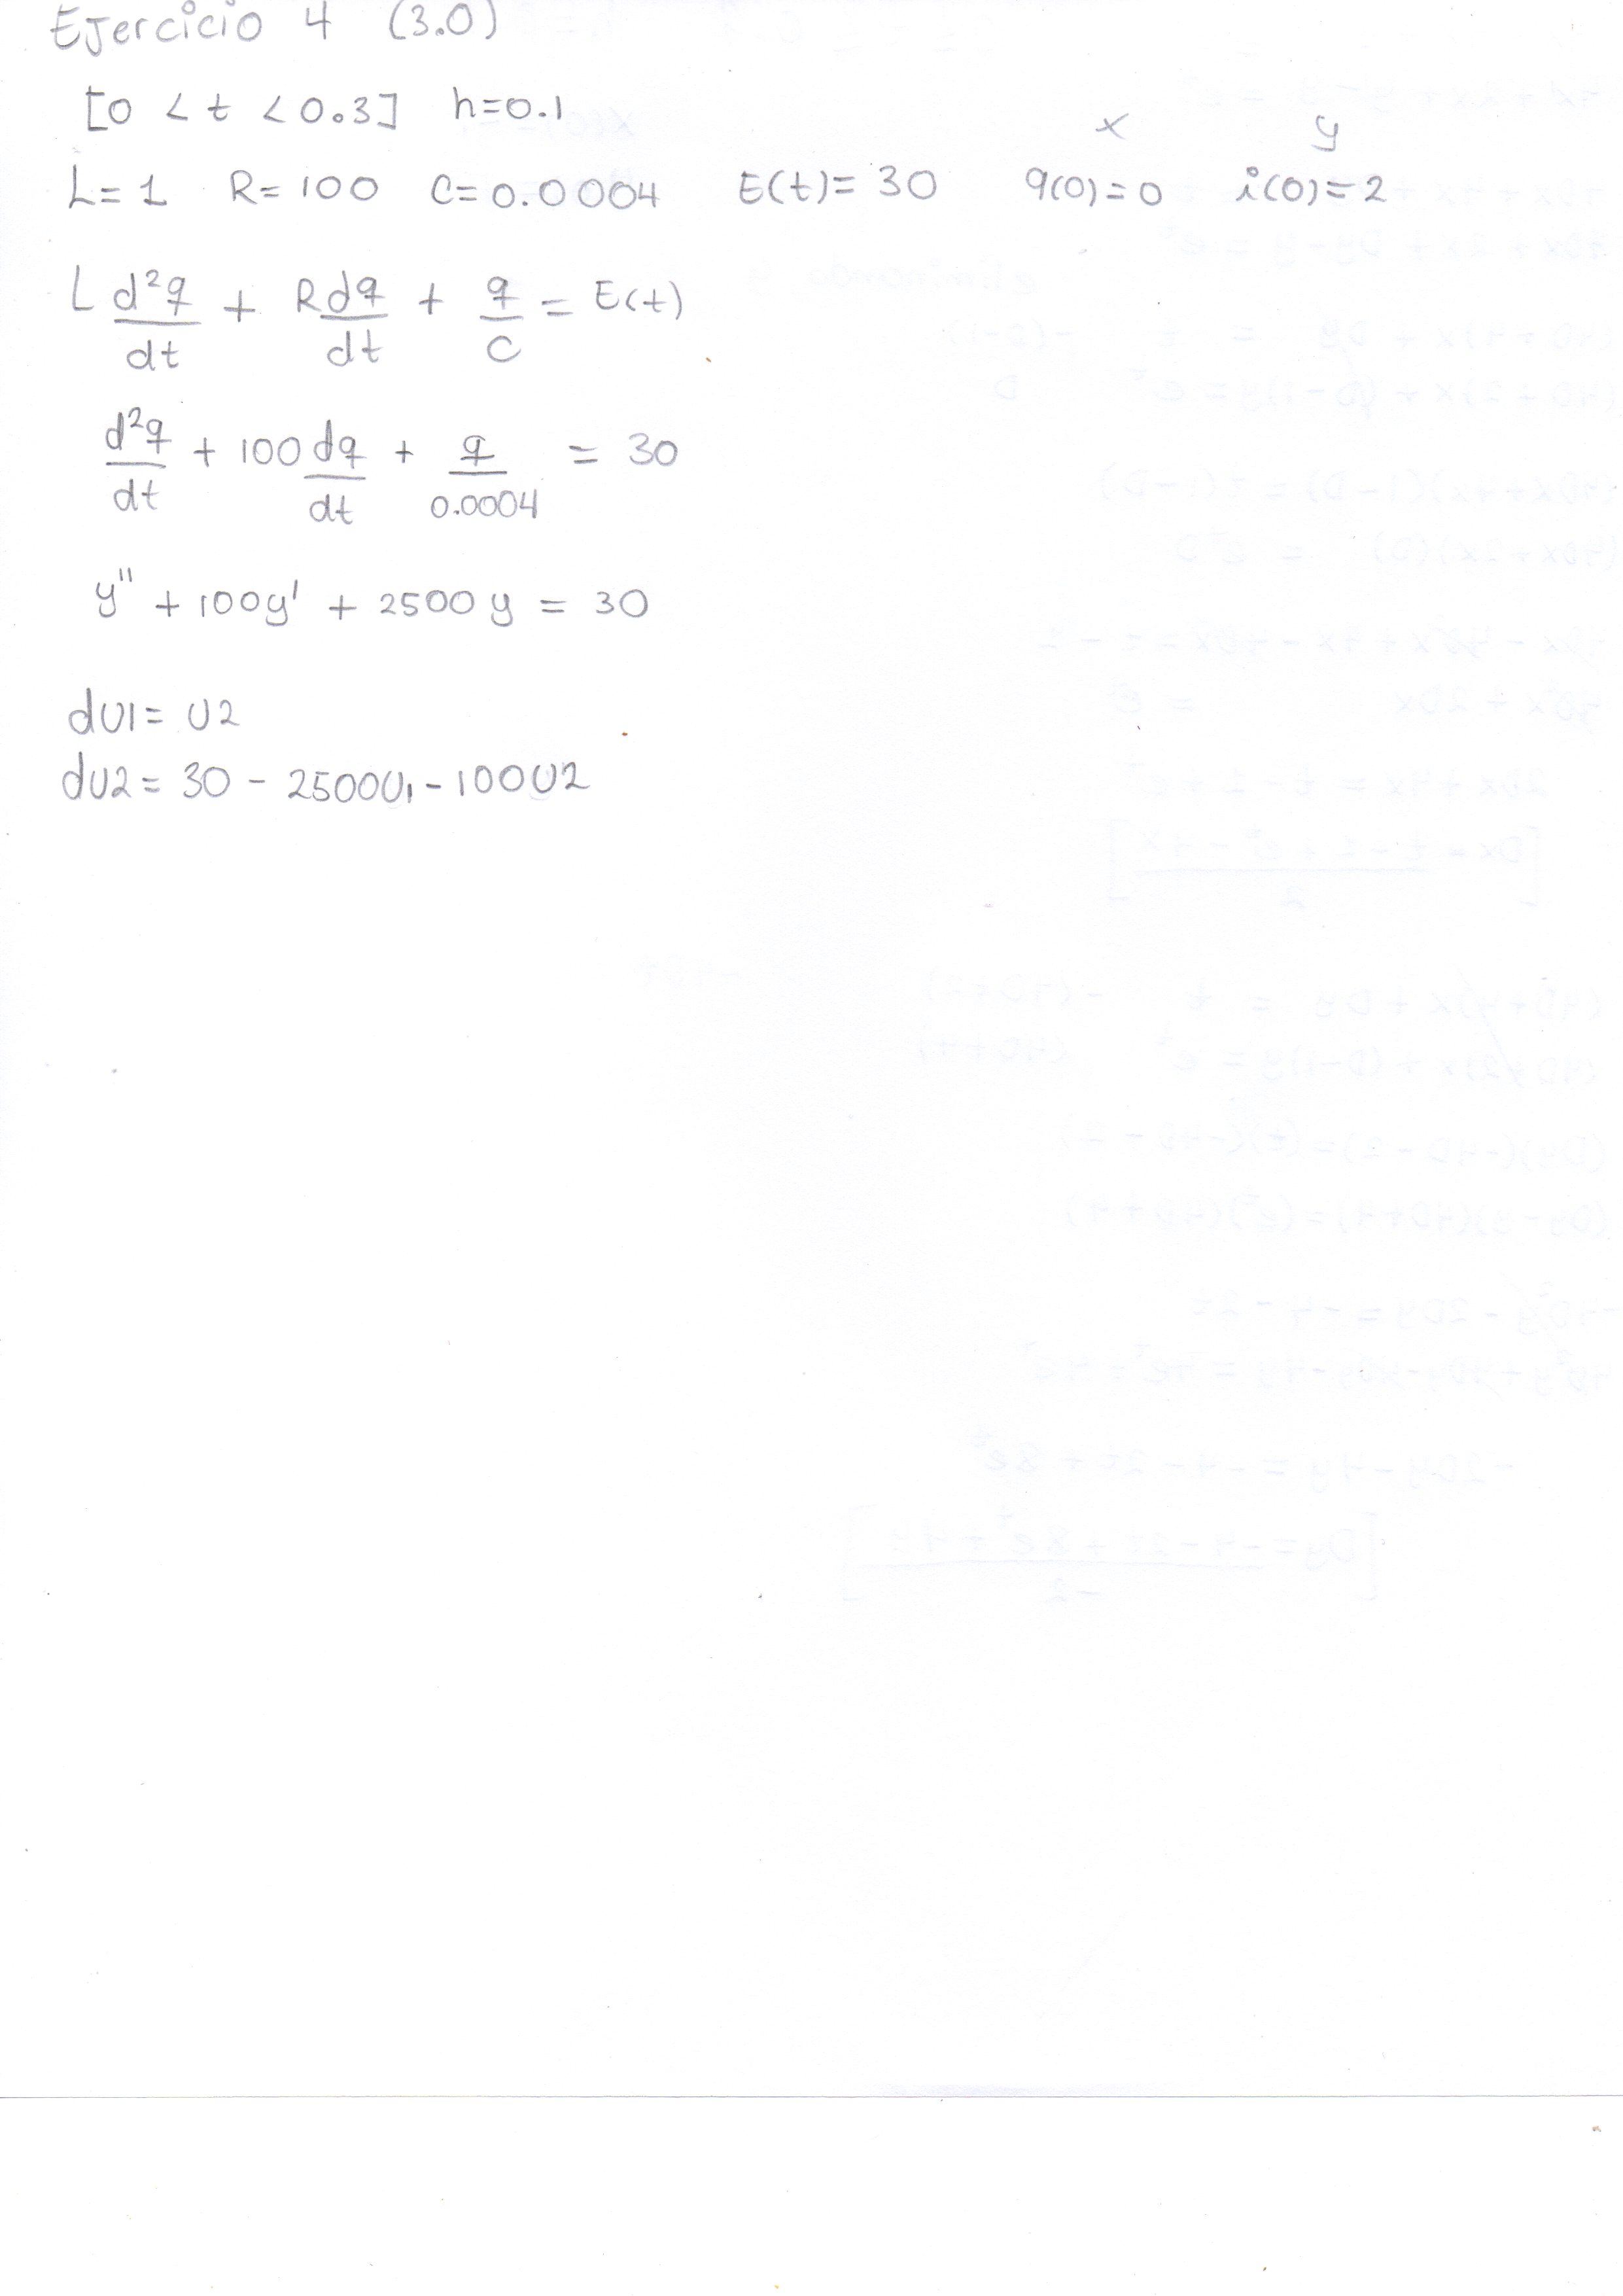 Ejercicio 4 (3.0)
[0 < t < 0.3] h=0.1
x y
L=1 R=100 C=0.0004 E(t)=30 q(0)=0 i(0)=2
L d²q/dt + R dq/dt + q/C = E(t)
d²q/dt + 100 dq/dt + q/0.0004 = 30
y'' + 100y' + 2500y = 30
dU1 = U2
dU2 = 30 - 2500U1 - 100U2